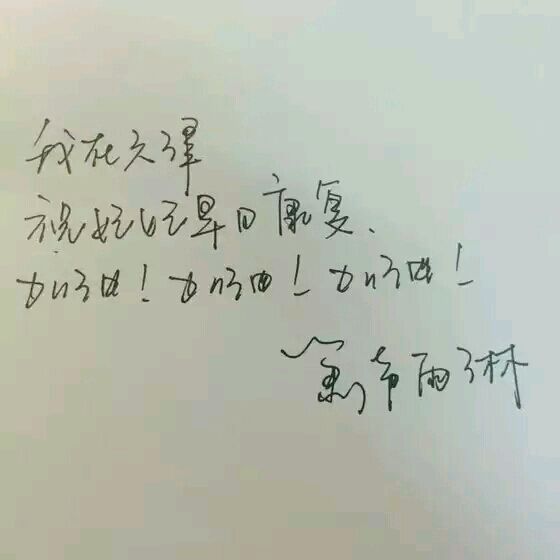 我在天津
祝妞妞早日康复、
加油！加油！加油！
雨琳